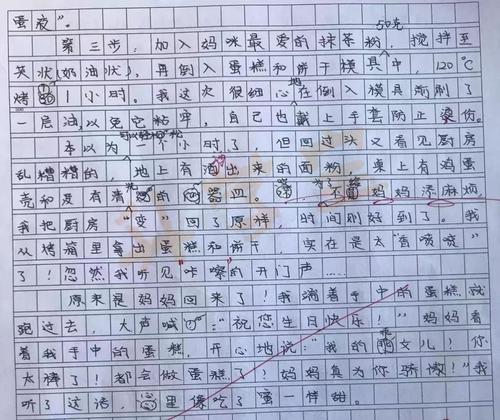 蛋液”。
50克
第三步，加入妈咪最爱的抹茶粉，搅拌至
奖状(奶油状)，再倒入蛋糕和饼干模具中，120℃
烤1小时。我这次很细心地在倒入模具前刷了
一层油，以免它粘牢，自己也戴上手套防止烫伤。
可以轻松
本以为一个小时了，但回过头又看见厨房
乱糟糟的，地上有洒出来的面粉，桌上有鸡蛋
壳和没有清的器皿。为了不妈妈添麻烦，
我把厨房“变”回了原样，时间刚好到了。我
从烤箱里拿出蛋糕和饼干，实在是太“香喷喷”
了！忽然我听见“咔嚓”的开门声……
原来是妈妈回来了！我端着手中的蛋糕就
跑过去，大声喊：“祝您生日快乐！”妈妈看
着我手中的蛋糕，开心地说：“我的乖女儿！你
太棒了！都会做蛋糕了！妈妈真为你骄傲！”我
听了这话，心里像吃了蜜一样甜。